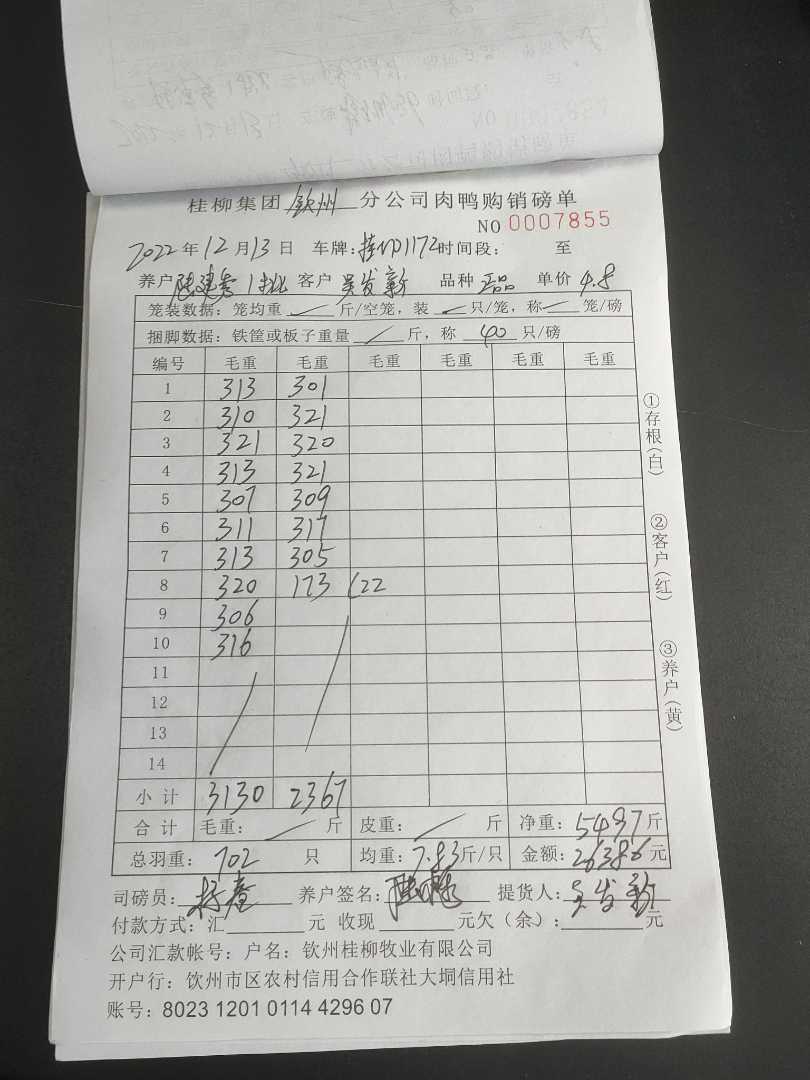 桂柳集团 钦州 分公司肉鸭购销磅单
NO 0007855
2022年12月13日 车牌:桂N01172时间段: 至
养户 陈建秀 1批 客户 吴发新 品种 正品 单价 4.8
笼装数据:笼均重 / 斤/空笼,装 / 只/笼,称 / 笼/磅
捆脚数据:铁筐或板子重量 / 斤,称 40 只/磅
编号 毛重 毛重 毛重 毛重 毛重 毛重
1 313 301
2 310 321
3 321 320
4 313 321
5 307 309
6 311 317
7 313 305
8 320 173 (22
9 306
10 316
11
12
13
14
小计 3130 2367
合计 毛重: / 斤 皮重: / 斤 净重: 5497斤
总羽重: 702 只 均重: 7.83斤/只 金额: 26386元
司磅员: 养户签名: 提货人: 吴发新
付款方式:汇 元 收现 元欠(余): 元
公司汇款帐号:户名:钦州桂柳牧业有限公司
开户行:饮州市区农村信用合作联社大垌信用社
账号:8023 1201 0114 4296 07
①存根(白)
②客户(红)
③养户(黄)